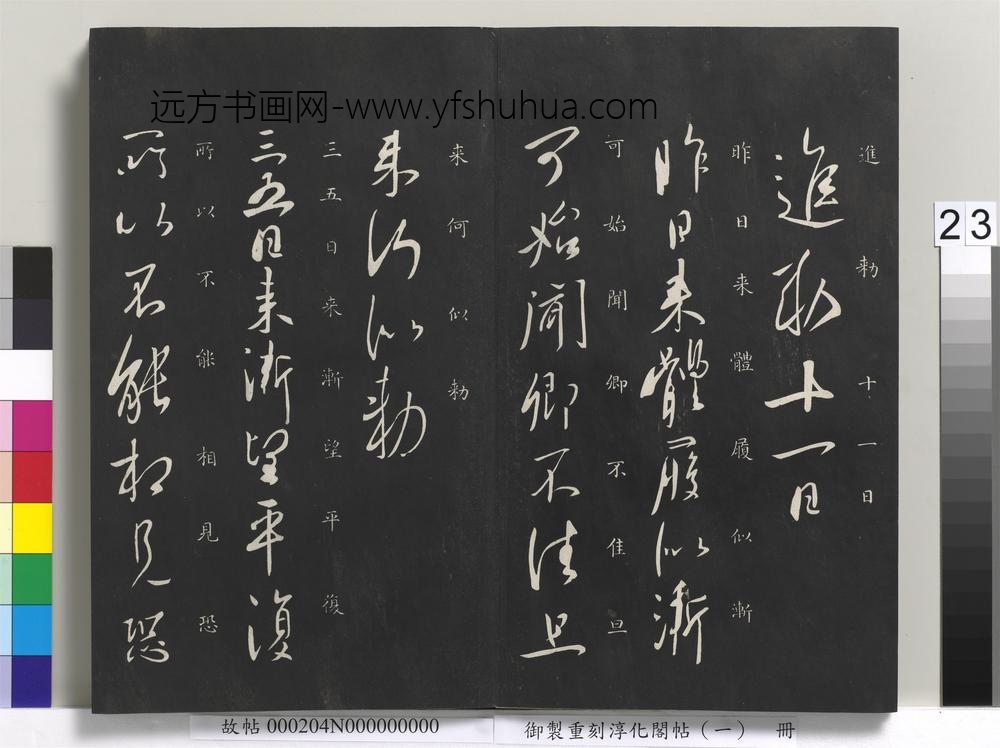 远方书画网-www.yfshuhua.com
進勅十一日
進勅十一日
昨日来體履似漸
昨日来體履似漸
可始聞卿不佳旦
可始聞卿不佳旦
来何似勅
来何似勅
三五日来漸望平復
三五日来漸望平復
所以不能相見恐
所以不能相見恐
23
故帖 000204N000000000
御製重刻淳化閣帖（一） 冊